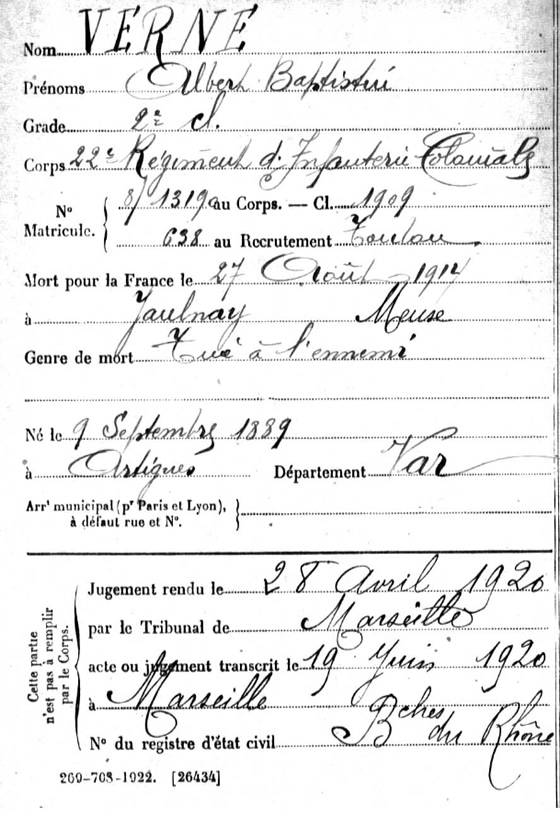 Nom VERNE
Prénoms Albert Baptistin
Grade 2e cl.
Corps 22e Régiment d'Infanterie Coloniale
N° Matricule. { 8/1319 au Corps. — Cl. 1909
638 au Recrutement Toulon
Mort pour la France le 27 Août 1914
à Jaulnay Meuse
Genre de mort Tué à l'ennemi
Né le 9 Septembre 1889
à Artigues Département Var
Arrt municipal (pr Paris et Lyon), }
à défaut rue et N°.
Cette partie
n'est pas à remplir
par le Corps.
Jugement rendu le 28 Avril 1920
par le Tribunal de Marseille
acte ou jugement transcrit le 19 Juin 1920
à Marseille
Bches du Rhône
N° du registre d'état civil
269-708-1922. [26434]